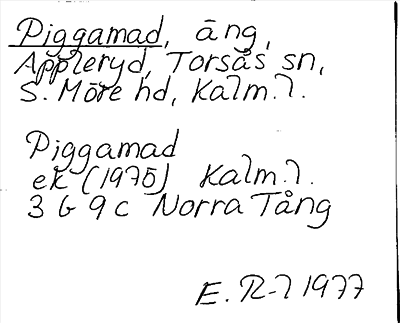 Piggamad, äng,
Appleryd, Torsås sn,
S. Möre hd, Kalm.l.
Piggamad
ek (1975) Kalm.l.
3 G 9 c Norra Tång
E. R-l 1977